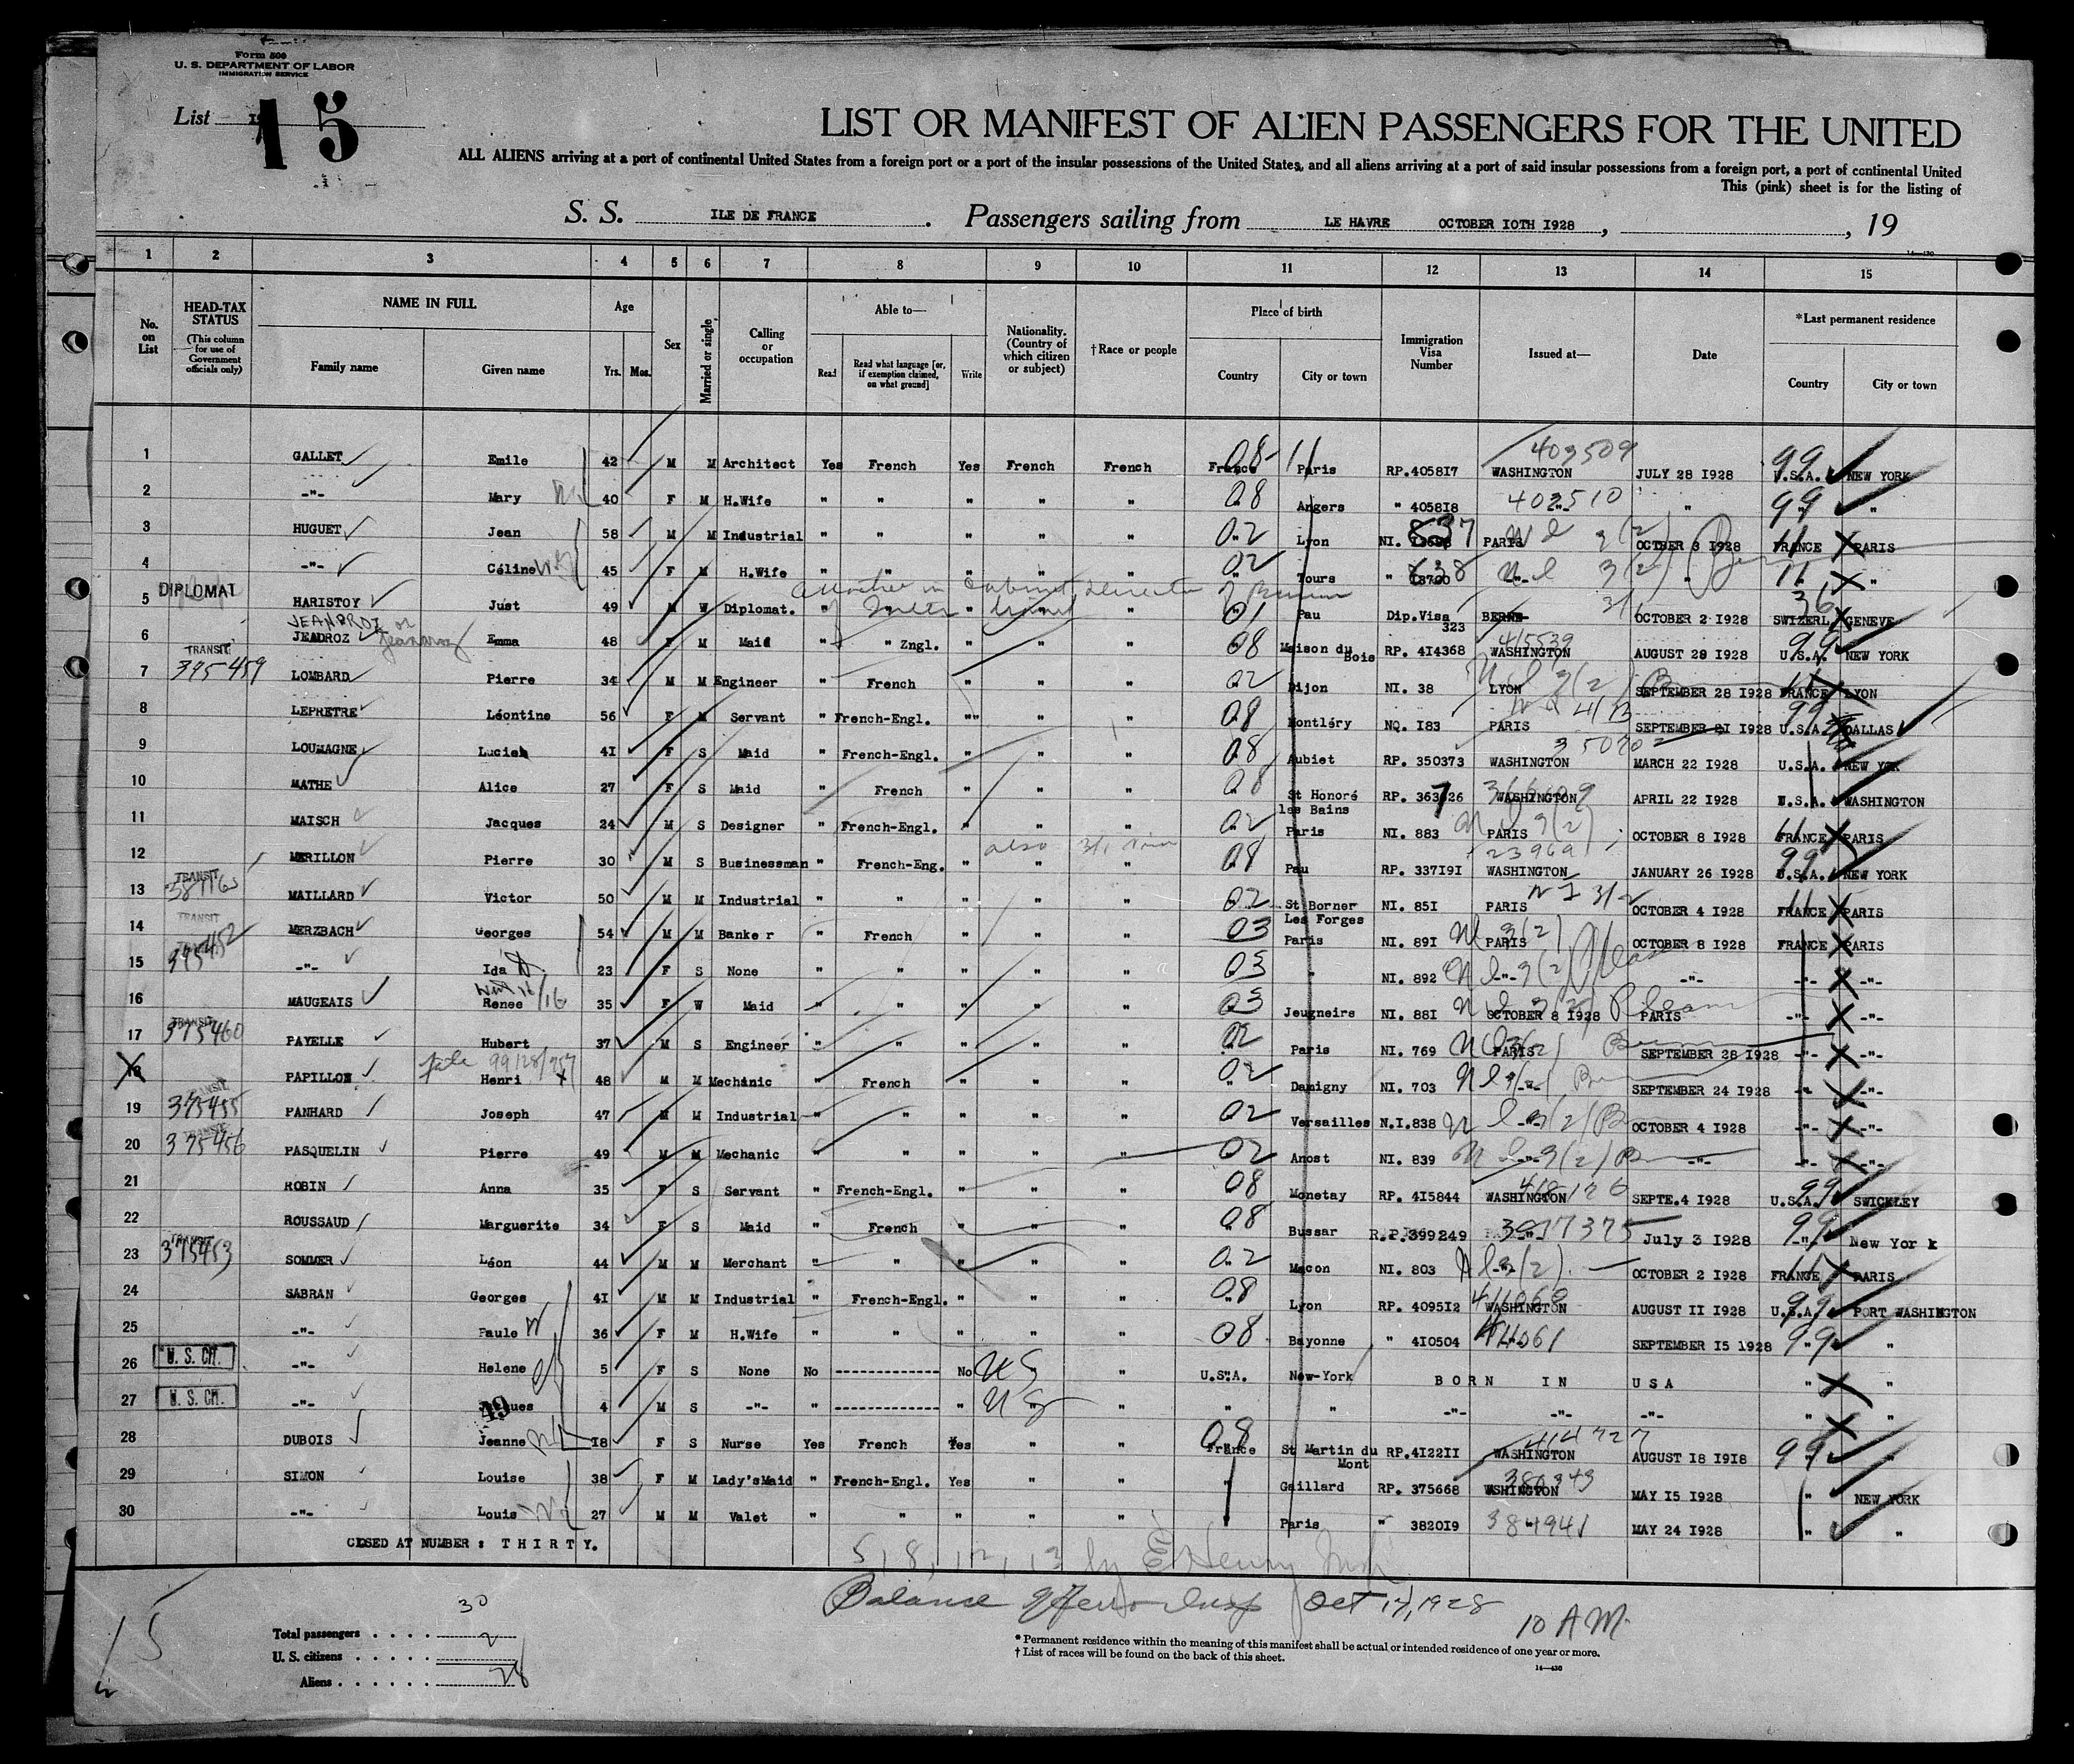 Form 500
U. S. DEPARTMENT OF LABOR
IMMIGRATION SERVICE
List 15
LIST OR MANIFEST OF ALIEN PASSENGERS FOR THE UNITED
ALL ALIENS arriving at a port of continental United States from a foreign port or a port of the insular possessions of the United States, and all aliens arriving at a port of said insular possessions from a foreign port, a port of continental United
This (pink) sheet is for the listing of
S. S. ILE DE FRANCE. Passengers sailing from LE HAVRE OCTOBER IOTH I928, , 19
14—430
1 2 3 4 5 6 7 8 9 10 11 12 13 14 15
No. on List
HEAD-TAX STATUS (This column for use of Government officials only)
NAME IN FULL
Family name Given name
Age
Yrs. Mos.
Sex
Married or single
Calling or occupation
Able to—
Read Read what language [or, if exemption claimed, on what ground] Write
Nationality. (Country of which citizen or subject)
†Race or people
Place of birth
Country City or town
Immigration Visa Number
Issued at—
Date
*Last permanent residence
Country City or town
1 GALLET Emile 42 M M Architect Yes French Yes French French France 08 Paris RP.4058I7 403509 WASHINGTON JULY 28 I928 99 U.S.A. NEW YORK
2 -"- Mary 40 F M H.Wife " " " " " 08 Angers " 4058I8 403510 " 99 " "
3 HUGUET Jean 58 M M Industrial " " " " " 02 Lyon NI. 837 PARIS OCTBER 3 I928 FRANCE PARIS
4 -"- Céline 45 F M H.Wife " " " " " 02 Tours " 838 -"- " 11 " "
DIPLOMAT
5 HARISTOY Just 49 M W Diplomat. " " " " 01 Pau Dip.Visa 323 BERNE OCTOBER 2 I928 36 SWIZERL GENEVE
6 JEADROZ Emma 48 F M Maid " " Engl. " " " 08 Maison du Bois RP. 4I4368 415539 WASHINGTON AUGUST 28 I928 99 U.S.A. NEW YORK
TRANSIT
7 395459 LOMBARD Pierre 34 M M Engineer " French " " " 02 Dijon NI. 38 LYON SEPTEMBER 28 I928 FRANCE LYON
8 LEPRETRE Léontine 56 F M Servant " French-Engl. "" " " 08 Montléry NQ. I83 PARIS SEPTEMBER 2I I928 99 U.S.A. DALLAS
9 LOUMAGNE Lucien 4I F S Maid " French-Engl. " " " 08 Aubiet RP. 350373 WASHINGTON MARCH 22 I928 U.S.A. NEW YORK
10 MATHE Alice 27 F S Maid " French " " " 08 St Honoré les Bains RP. 363726 WASHINGTON APRIL 22 I928 U.S.A. WASHINGTON
11 MAISCH Jacques 24 M S Designer " French-Engl. " " " 02 Paris NI. 883 PARIS OCTOBER 8 I928 FRANCE PARIS
12 MERILLON Pierre 30 M S Businessman " French-Eng. " also " " 08 Pau RP. 337I9I 23969 WASHINGTON JANUARY 26 I928 99 U.S.A. NEW YORK
TRANSIT
13 MAILLARD Victor 50 M M Industrial " " " " " 02 St Borner Les Forges NI. 85I PARIS OCTOBER 4 I928 FRANCE PARIS
TRANSIT
14 MERZBACH Georges 54 M M Banker " French " " " 03 Paris NI. 89I PARIS OCTOBER 8 I928 FRANCE PARIS
15 -"- Ida 23 F S None " " " " " 03 " NI. 892 -"- -"- -"- -"-
16 MAUGEAIS Renee 35 F W Maid " " " " " 03 Jeugneirs NI. 88I OCTOBER 8 I928 PARIS -"- -"-
TRANSIT
17 375460 PAYELLE Hubert 37 M S Engineer " " " " " 02 Paris NI. 769 PARIS SEPTEMBER 28 I928 -"- -"-
18 PAPILLON Henri 48 M M Mechinic " French " " " 02 Damigny NI. 703 -"- SEPTEMBER 24 I928 -"- -"-
TRANSIT
19 375455 PANHARD Joseph 47 M M Industrial " " " " " 02 Versailles N.I.838 -"- OCTOBER 4 I928 -"- -"-
TRANSIT
20 375456 PASQUELIN Pierre 49 M M Mechanic " " " " " 02 Anost NI. 839 -"- -"- -"- -"-
21 ROBIN Anna 35 F S Servant " French-Engl. " " " 08 Monetay RP. 4I5844 WASHINGTON SEPTE.4 I928 99 U.S.A. SWICKLEY
22 ROUSSAUD Marguerite 34 F S Maid " French " " " 08 Bussar R.P.399249 July 3 I928 99 -"- New York
TRANSIT
23 375453 SOMMER Léon 44 M M Merchant " " " " " 02 Macon NI. 803 -"- OCTOBER 2 I928 FRANCE PARIS
24 SABRAN Georges 4I M M Industrial " French-Engl. " " " 08 Lyon RP. 4095I2 411060 WASHINGTON AUGUST II I928 U.S.A. PORT WASHINGTON
25 -"- Paule 36 F M H.Wife " " " " " 08 Bayonne " 4I0504 411061 SEPTEMBER I5 I928 99 " "
26 U. S. CIT. -"- Helene 5 F S None No ------------- No US " U.S.A. New-York BORN IN USA " "
27 U. S. CIT. -"- Jacques 4 M S -"- " ------------- " US " " " -"- -"- -"- " "
28 DUBOIS Jeanne I8 F S Nurse Yes French Yes " " France 08 St Martin du Mont RP.4I22II 414727 WASHINGTON AUGUST I8 I9I8 99 "
29 SIMON Louise 38 F M Lady'sMaid " French-Engl. Yes " " " Gaillard RP. 375668 380343 WSHINGTON MAY I5 I928 " NEW YORK
30 -"- Louis 27 M M Valet " " " " " Paris " 3820I9 384941 MAY 24 I928 " "
CLOSED AT NUMBER : THIRTY.
5, 8, 12, 13 by E Henry Insp
Balance Insp Oct 17, 1928
10 A M.
15
Total passengers . . . . 30
U. S. citizens . . . . . 2
Aliens . . . . . . 28
* Permanent residence within the meaning of this manifest shall be actual or intended residence of one year or more.
† List of races will be found on the back of this sheet.
14—430